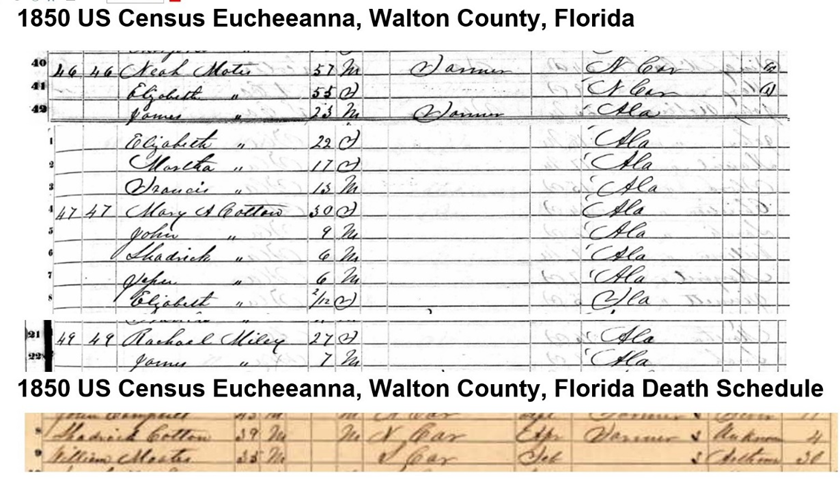 1850 US Census Eucheeanna, Walton County, Florida
40 46 46 Noah Motes 57 M Farmer N Car
41 Elizabeth " 55 F N Car
42 James " 23 M Farmer Ala
1 Elizabeth " 22 F Ala
2 Martha " 17 F Ala
3 Francis " 13 M Ala
4 47 47 Mary A Cotton 30 F Ala
5 John " 9 M Ala
6 Shadrick " 6 M Ala
7 " 6 M Ala
8 Elizabeth " 2/12 F Fla
21 49 49 Rachael Miley 27 F Ala
22 James " 7 M Ala
1850 US Census Eucheeanna, Walton County, Florida Death Schedule
John Campbell M N Car Farmer
8 Shadrick Cotton 39 M M N Car Apr Farmer Unknown 4
9 William 35 M S Car Feb 30